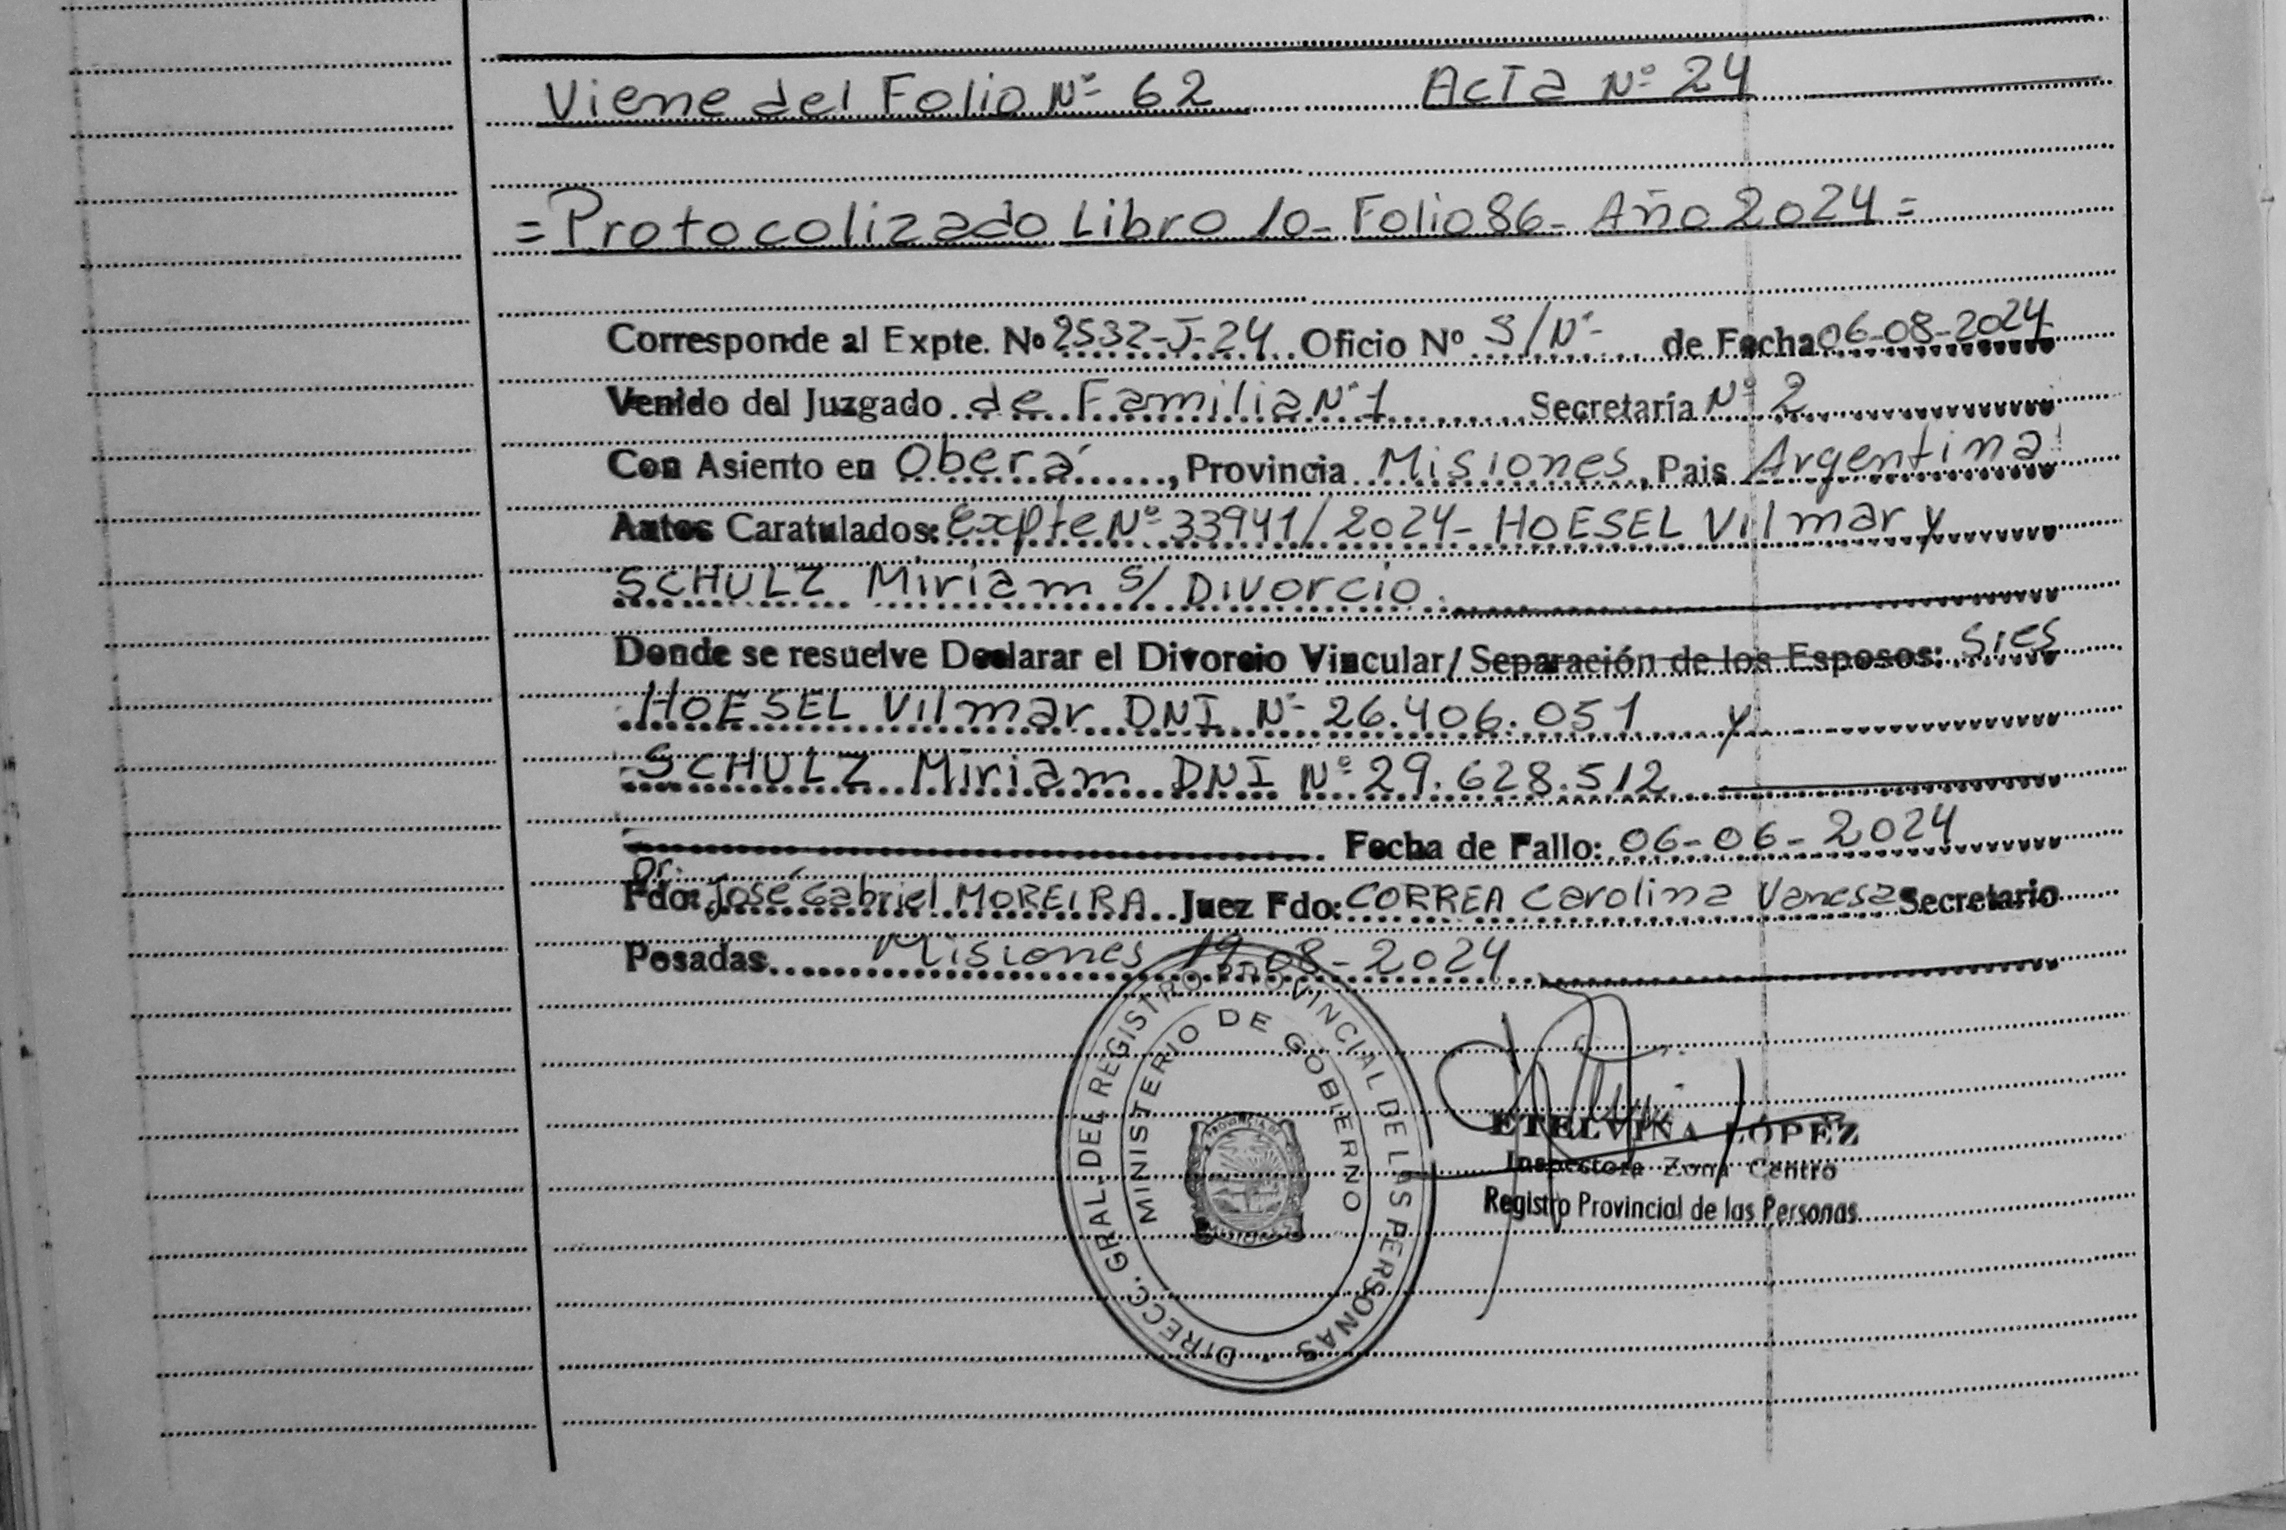 Viene del Folio Nº 62 Acta Nº 24
= Protocolizado Libro 10 - Folio 86 - Año 2024 =
Corresponde al Expte. Nº 2532-J-24 Oficio Nº S/Nº de Fecha 06-08-2024
Venido del Juzgado de Familia Nº 1 Secretaría Nº 2
Con Asiento en Oberá, Provincia Misiones, Pais Argentina
Autos Caratulados: Expte Nº 33941/2024 - HOESEL Vilmar y
SCHULZ Miriam S/ Divorcio.
Donde se resuelve Declarar el Divorcio Vincular/Separación de los Esposos: Sres
HOESEL Vilmar DNI Nº 26.406.051 y
SCHULZ Miriam DNI Nº 29.628.512
Fecha de Fallo: 06-06-2024
Fdo: Dr. José Gabriel MOREIRA Juez Fdo: CORREA Carolina Vanesa Secretario
Posadas Misiones 19-08-2024
DIRECC. GRAL. DEL REGISTRO PROVINCIAL DE LAS PERSONAS
MINISTERIO DE GOBIERNO
PROVINCIA DE
MISIONES
ETELVINA LÓPEZ
Inspectora Zona Centro
Registro Provincial de las Personas